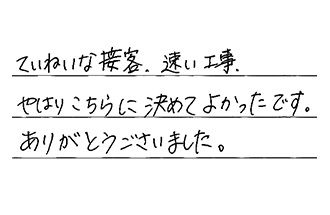 ていねいな接客、速い工事、
やはりこちらに決めてよかったです。
ありがとうございました。